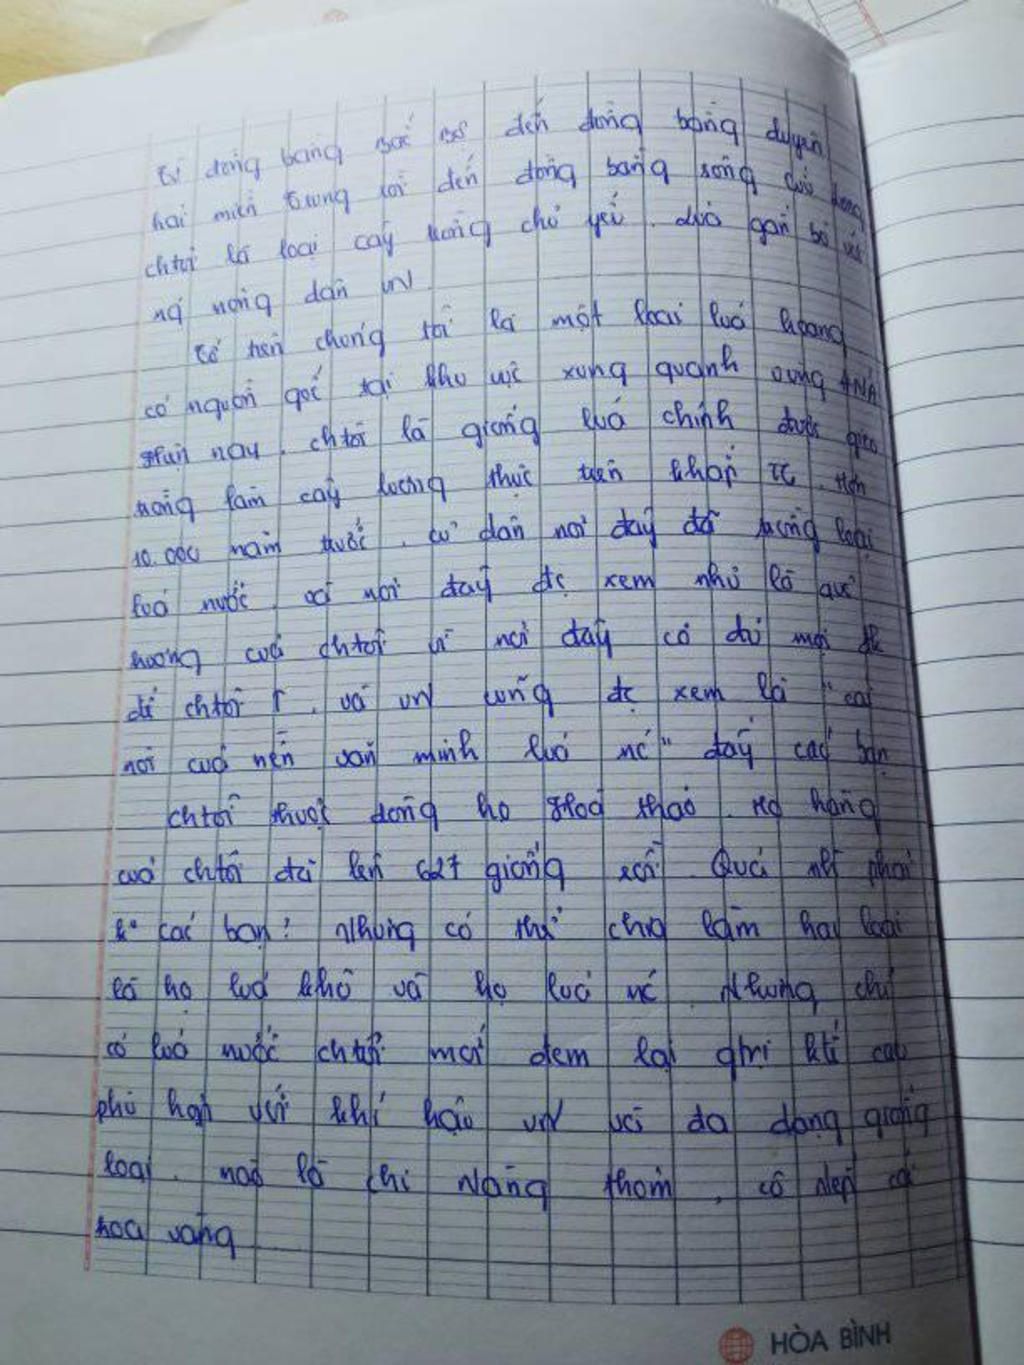 từ đồng bằng Bắc Bộ đến đồng bằng duyên
hải miền trung rồi đến đồng bằng sông cửu long
chtôi là loại cây trồng chủ yếu. lúa gắn bó với
ng nông dân VN
Tổ tiên chúng tôi là một loại lúa hoang
có nguồn gốc tại khu vực xung quanh vùng ĐNA
hiện nay. chtôi là giống lúa chính được gieo
trồng làm cây lương thực trên khắp TG. Hơn
10.000 năm trước. cư dân nơi đây đã trồng loại
lúa nước. nơi đây đc xem như là quê
hương của chtôi vì nơi đây có đủ mọi đk
để chtôi. và VN cũng đc xem là "cái
nôi của nền văn minh lúa nc" đấy các bạn
chtôi thuộc dòng họ Hoà thảo. Họ hàng
của chtôi tới lên 627 giống rồi. Quá nh phải
ko các bạn! Nhưng có thể chia làm hai loại
là họ lúa khô và họ lúa nc. Nhưng chỉ
có lúa nước chtôi mới đem lại gtrị ktế cao
phù hợp với khí hậu VN với đa dạng giống
loại. nào là chị Nàng thơm, cô nếp cái
hoa vàng
HÒA BÌNH